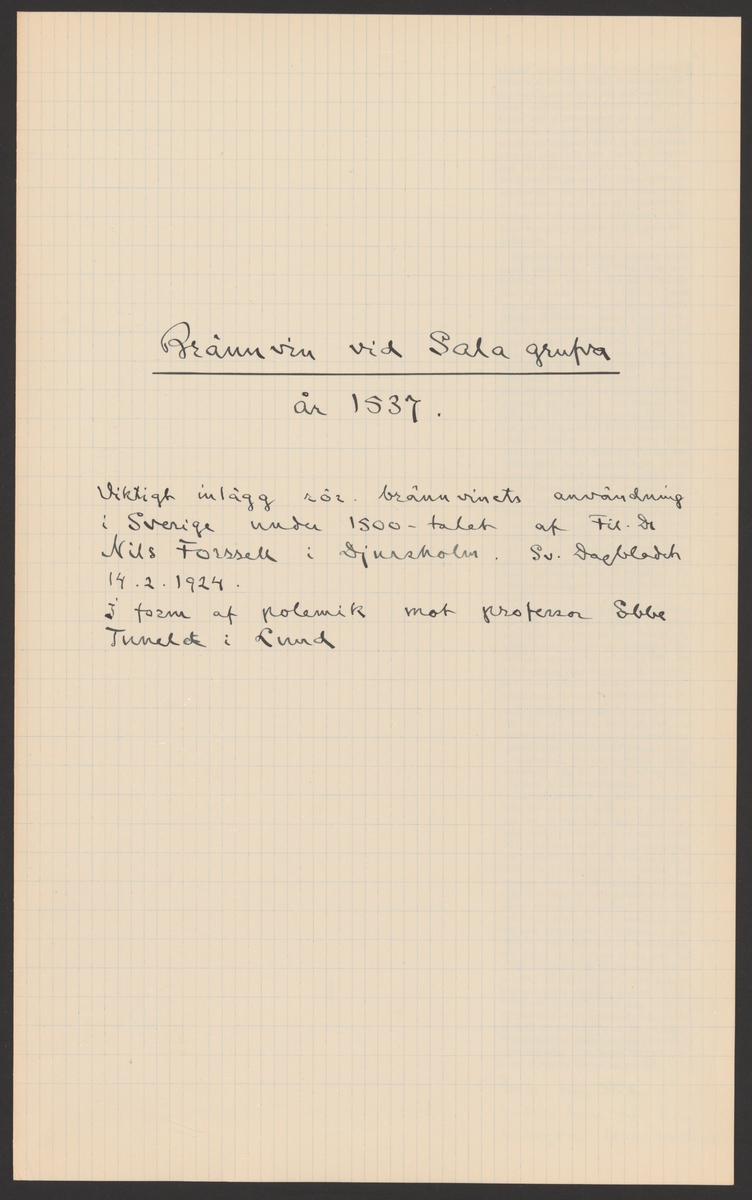 Brännvin vid Sala grufva
år 1537.
Viktigt inlägg rör. brännvinets användning
i Sverige under 1500-talet af Fil. Dr
Nils Forssell i Djursholm. Sv. Dagbladet
14.2.1924.
I form af polemik mot professor Ebbe
Tuneld i Lund